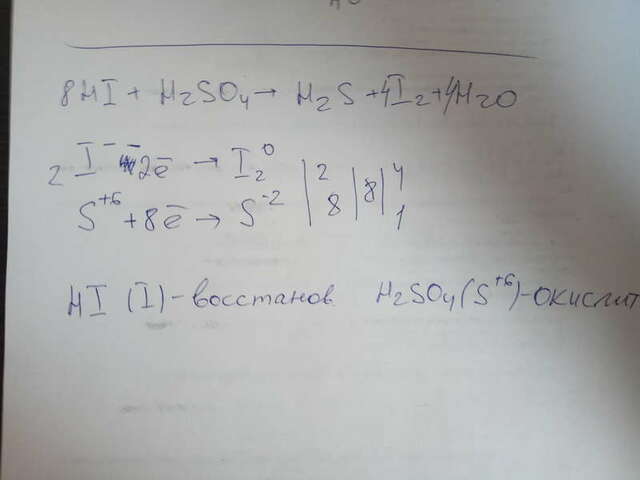 8HI + H₂SO₄ → H₂S + 4I₂ + 4H₂O
2 I⁻ - 2ē → I₂⁰ | 2 | 8 | 4
S⁺⁶ + 8ē → S⁻² | 8 | | 1
HI (I) - восстанов. H₂SO₄ (S⁺⁶) - окислит